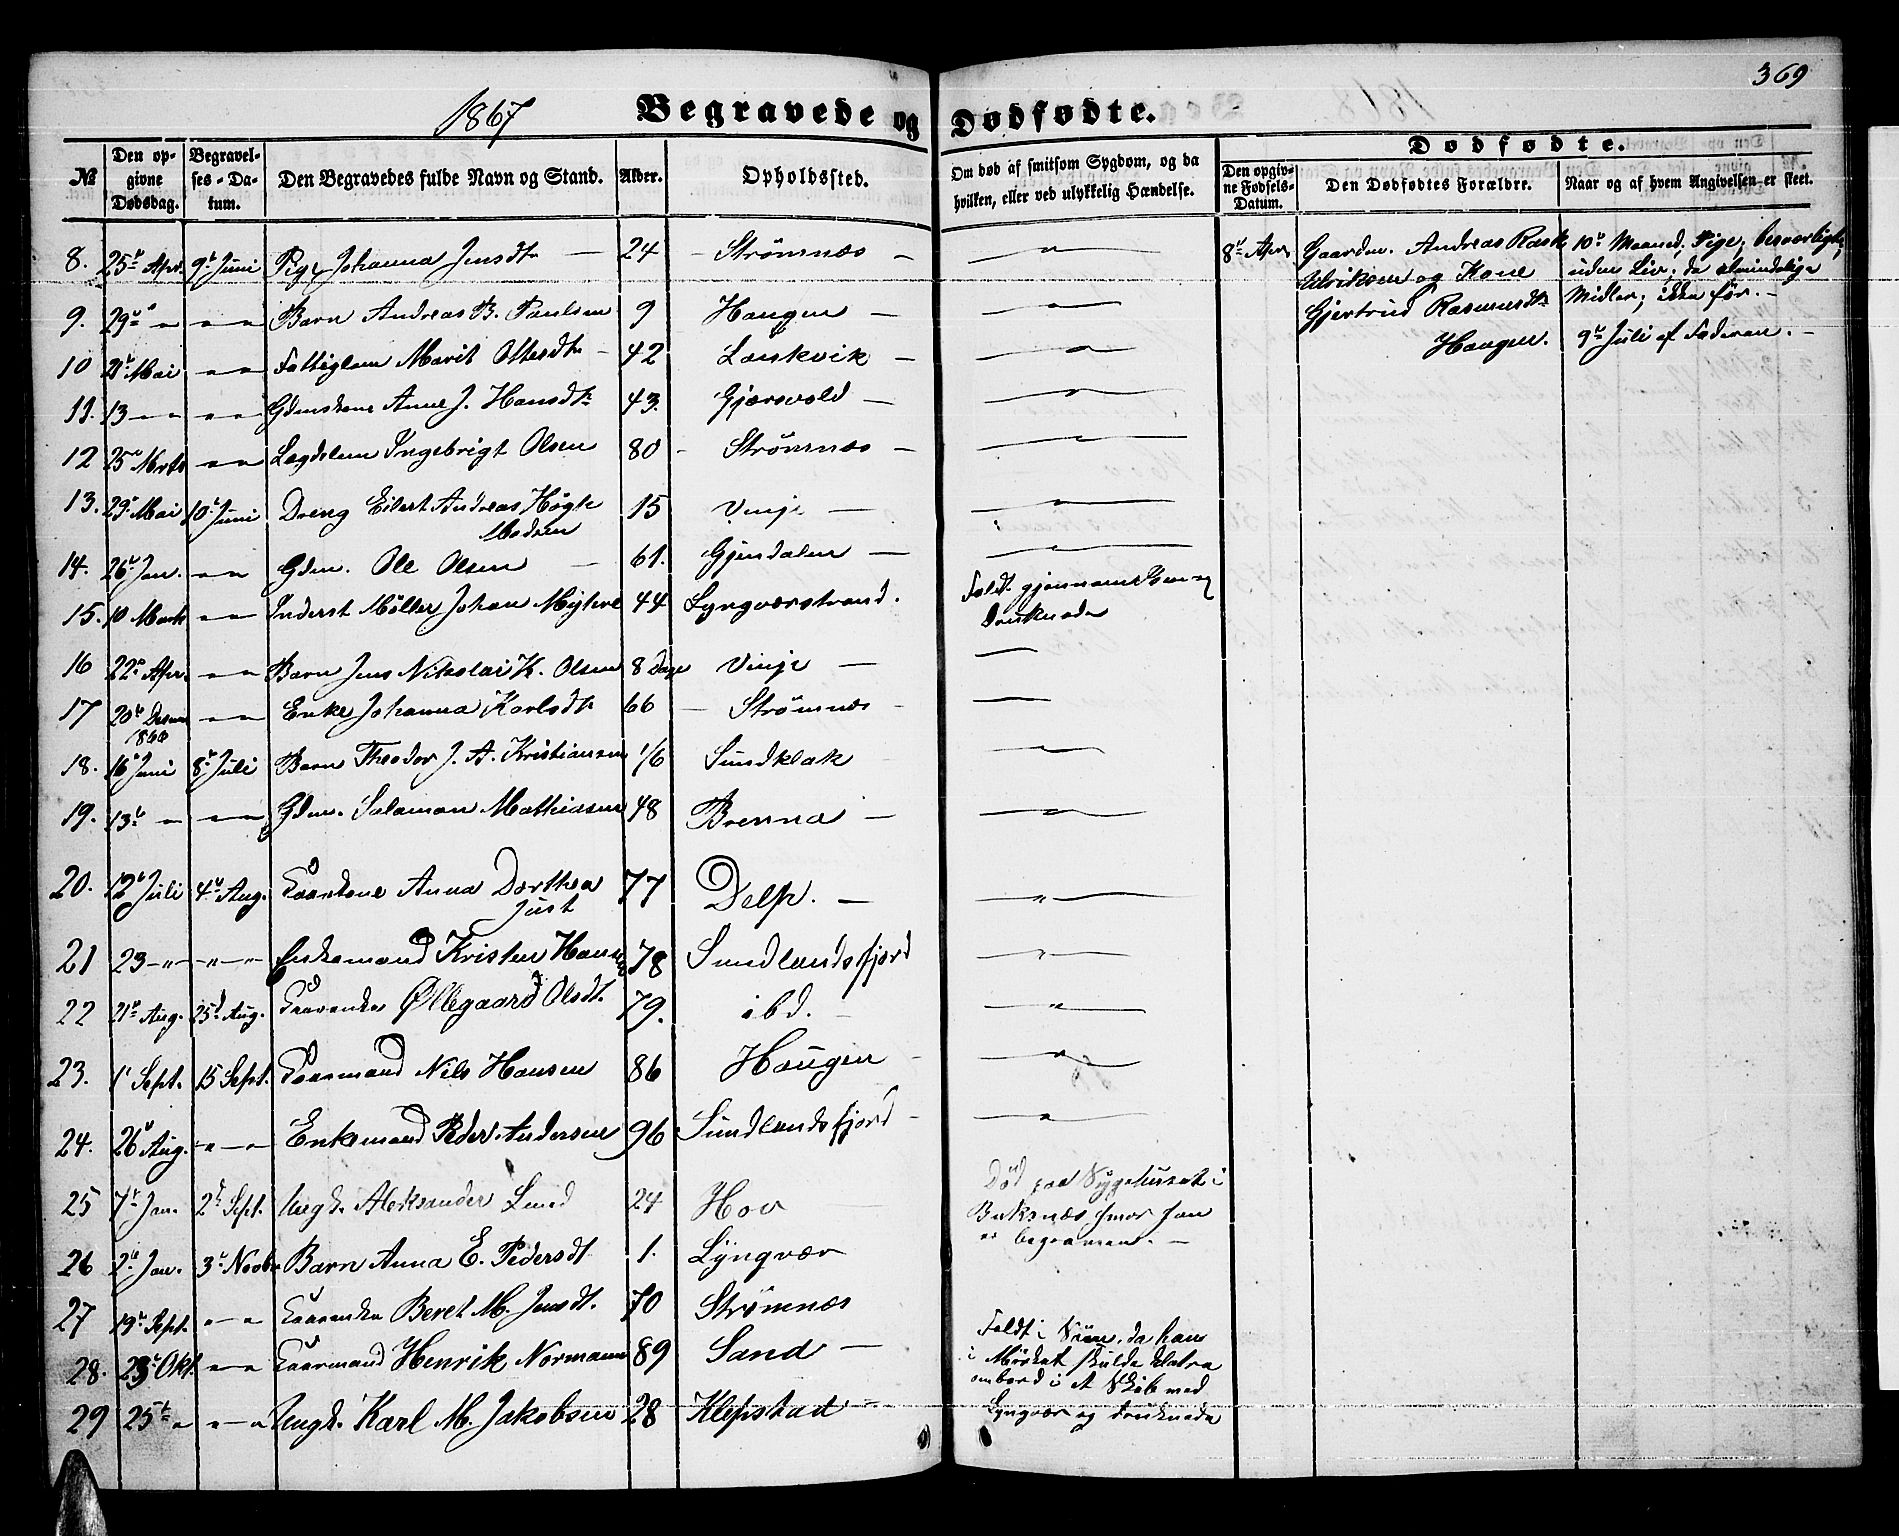 369
1867 Begravede og Dødfødte.
№
Den opgivne Dødsdag.
Begravelses-Datum.
Den Begravedes fulde Navn og Stand.
Alder.
Opholdssted.
Om død af smitsom Sygdom, og da hvilken, eller ved ulykkelig Hændelse.
Dødfødte.
Den opgivne Fødsels-Datum.
Den Dødfødtes Forældre.
Naar og af hvem Angivelsen er skeet.
8. 25de Apr. 9de Juni Pige Johanna Jensdtr — 24 — Strømnæs — — " —
9. 29de " — " — " Barn Andreas B. Paulsen 9 Haugen — — " —
10 21de Mai — " — " Fattiglem Marit Ottesdtr — 42 Laukvik — — " —
11. 13 — " — " — " Gdmskone Anne J. Hansdtr 43. Gjærsvold — — " —
12 25de Marts — " — " Lægdslem Ingebrigt Olsen 80 - Strømnæs — — " —
13. 29de Mai 10de Juni Dreng Eilert Andreas Høgh
Madsen 15 Vinje — — " —
14. 26de Jan. — " — " Gdm. Ole Olsen — 61. Gjendalen — — " —
15. 10 Marts — " — " Inderst Møller Johan Myhre 44 Lyngværstrand. Faldt gjennem Isen og
druknede
16 22de Apr. — " — " Barn Jens Nikolai K. Olsen 8 Dage Vinje — —
17 20de Decem
1866 — " — " Enke Johanna Karlsdtr 66 — Strømnæs - —
18. 16de Juni 8de Juli Barn Theodor J. A. Kristiansen 1/6 Sundklak — " —
19. 13de — " — " — " Gdm. Salamon Mathiasen 48 Brenna — — " —
20. 12te Juli 4de Aug. Kaarkone Anna Dorthea
Just 77 Delp. — — " —
21 23 — " — " — " — Enkemand Kristen Hansen 78 Sundlandsfjord — " —
22 21de Aug. 25d Aug. Kaarenke Øllegaard Olsdt. 79. ibd. - — " —
23. 1' Sept. 15 Sept. Kaarmand Nils Hansen 86 Haugen - — " —
24. 26de Aug. — " — " Enkemand Peder Andersen 96 Sundlandsfjord - — " —
25 7de Jan. 2d Sept. Ungk. Aleksander Lund 24 Hov — Død paa Sygehuset i
Buksnæs hvor han
er begraven. —
26 2de Jan. 3de Novbr Barn Anna E. Pedersdt. 1. Lyngvær
27 19de Sept. " — " Kaarenke Beret M. Jensdt. 70 Strømnæs
28. 23de Okt. " — " Kaarmand Henrik Normann 89 Sand —
29 25de " " — " Ungk. Karl M. Jakobsen 28 Klepstad — Faldt i Søen, da han
i Mørket skulde klatre
ombord i et Skib ved
Lyngvær og druknede
8de April Gaardm. Andreas Rask
Ulriksen og Kone
Gjertrud Rasmusdtr
Haugen.
10de Maaned; Pige; besværligt;
uden Liv; de almindelige
Midler; ikke før. —
9de Juli af Faderen. —